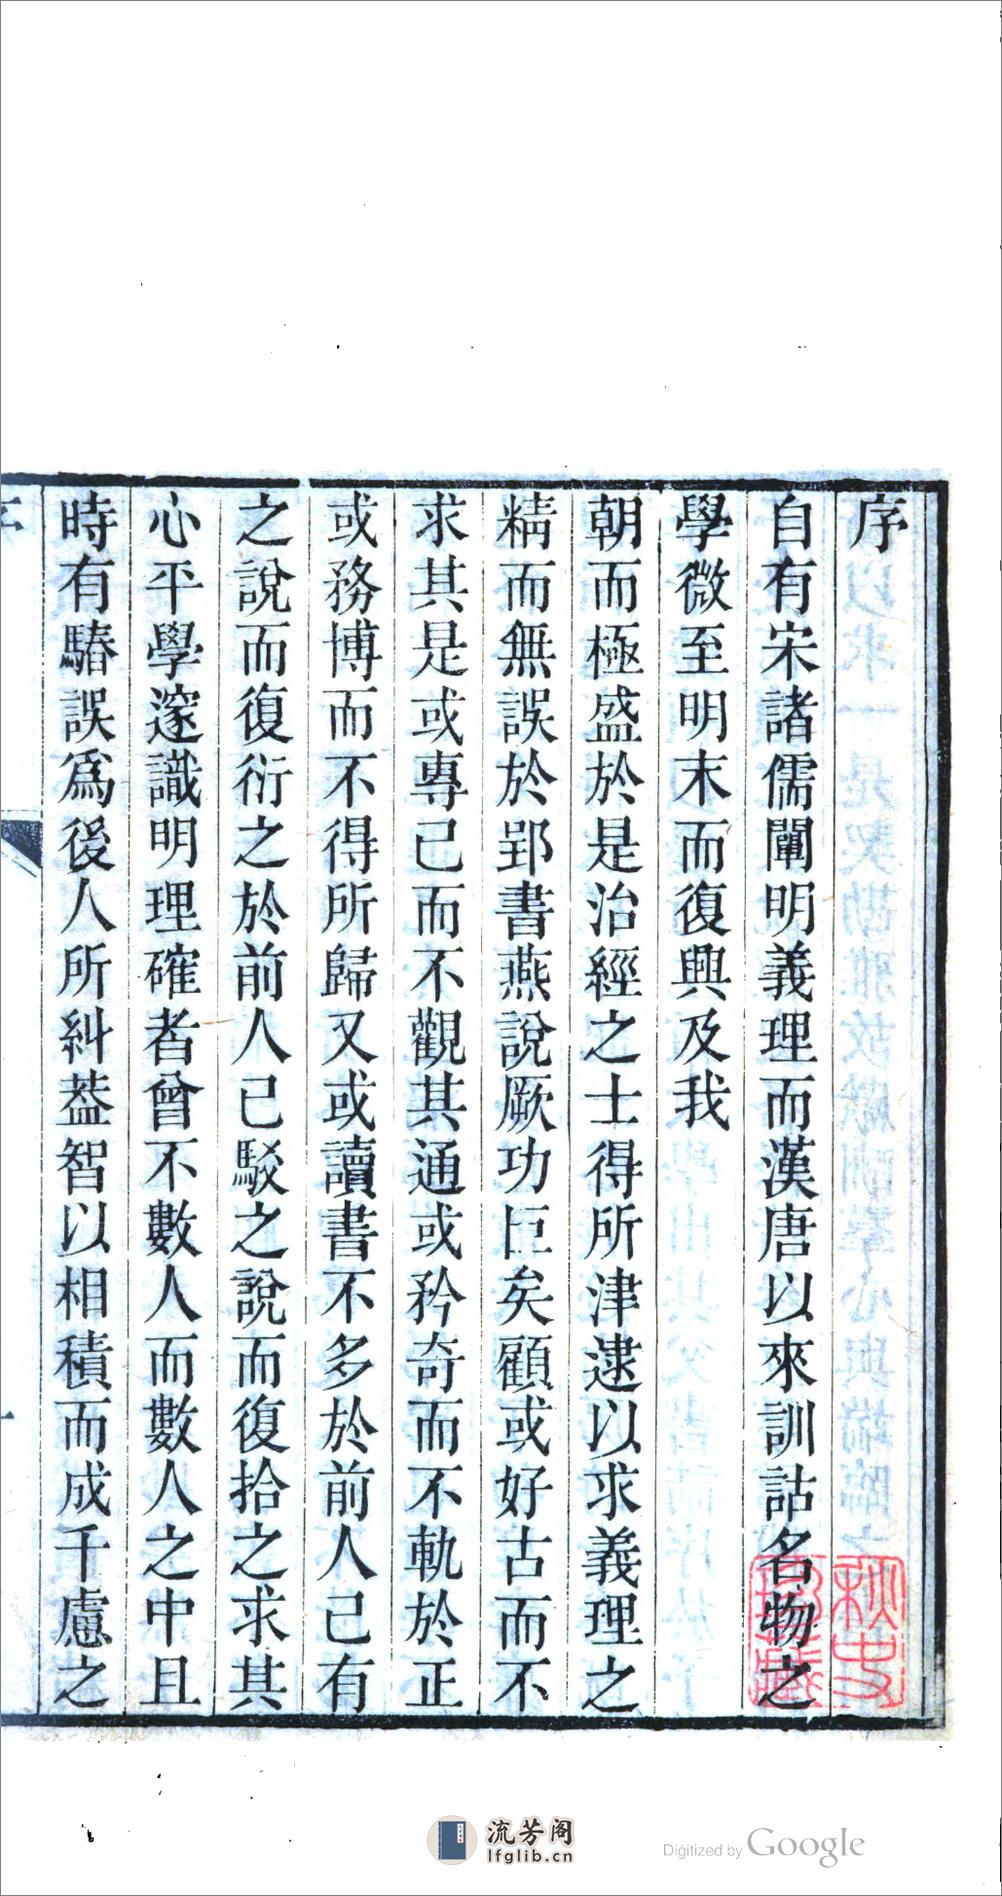 序
自有宋諸儒闡明義理而漢唐以來訓詁名物之
學微至明末而復興及我
朝而極盛於是治經之士得所津逮以求義理之
精而無誤於郢書燕說厥功巨矣顧或好古而不
求其是或專己而不觀其通或矜奇而不軌於正
或務博而不得所歸又或讀書不多於前人已有
之說而復衍之於前人已駁之說而復拾之求其
心平學邃識明理確者曾不數人而數人之中且
時有騞誤爲後人所糾葢智以相積而成千慮之
序
一
流芳阁
lfglib.cn
Digitized by Google